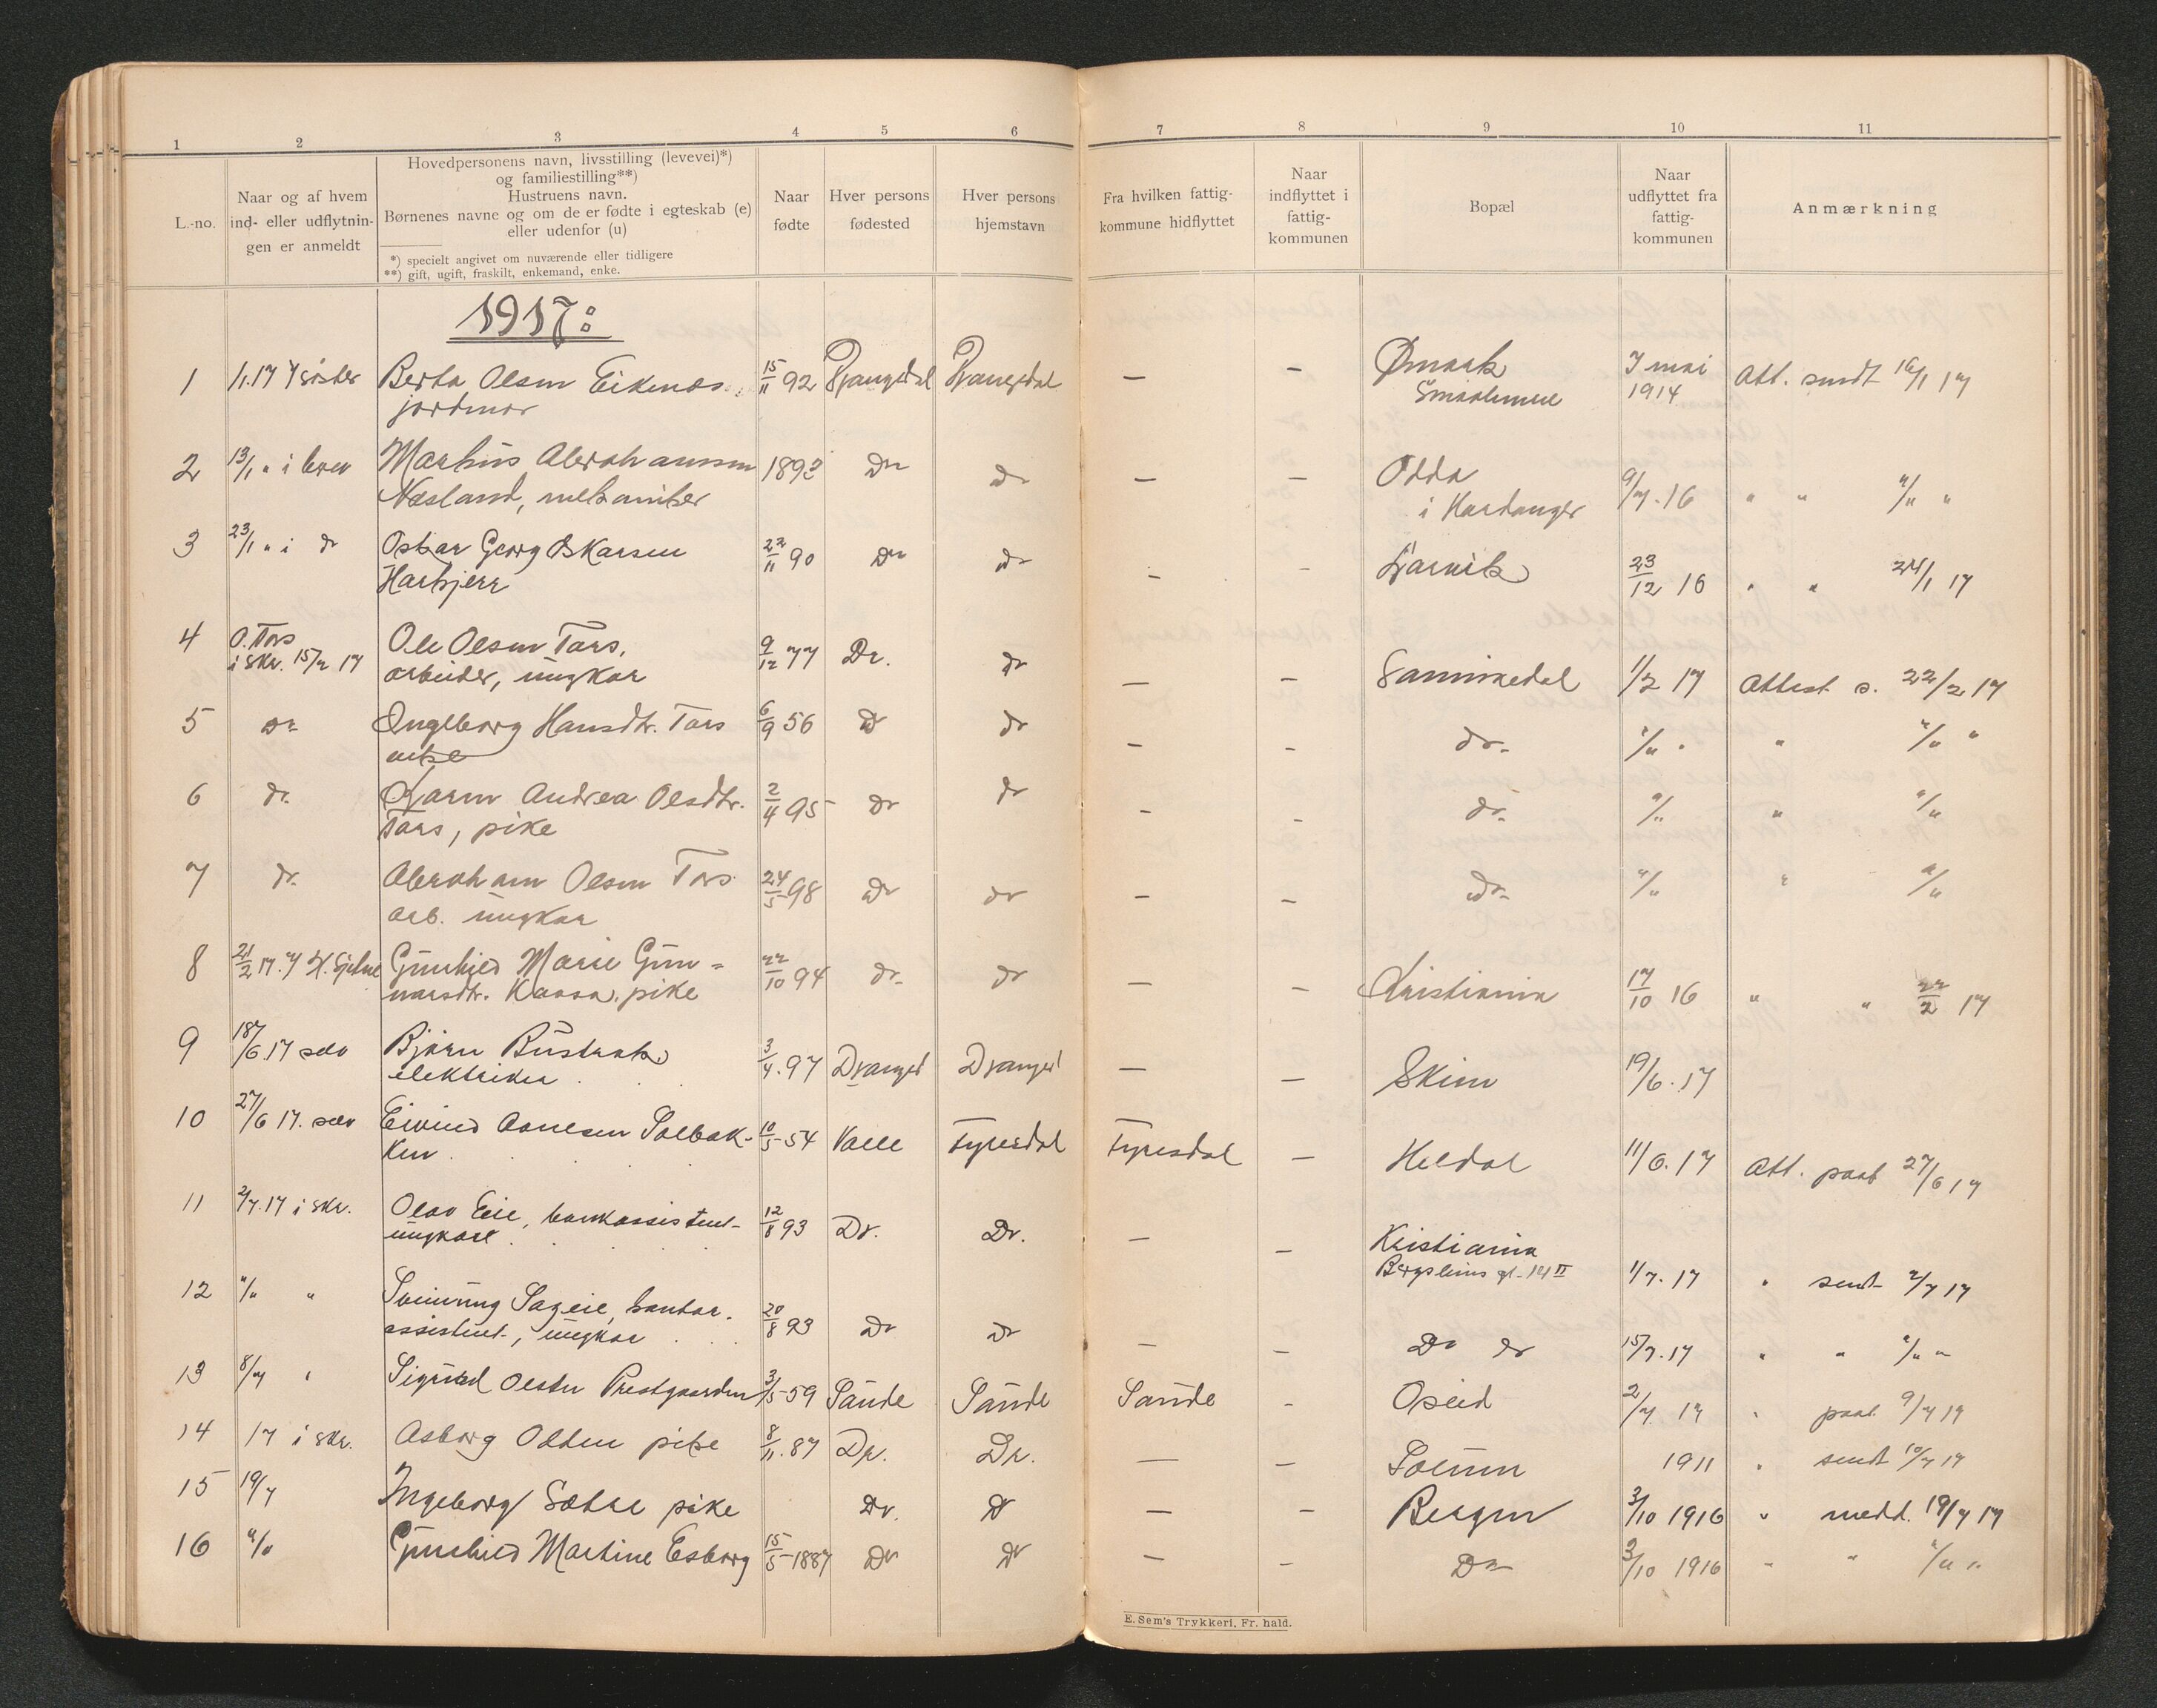 1 2 3 4 5 6 7 8 9 10 11
L.-no.
Naar og af hvem
ind- eller udflytnin-
gen er anmeldt
Hovedpersonens navn, livsstilling (levevei)*)
og familiestilling**)
Hustruens navn.
Børnenes navne og om de er fødte i egteskab (e)
eller udenfor (u)
*) specielt angivet om nuværende eller tidligere
**) gift, ugift, fraskilt, enkemand, enke.
Naar
fødte
Hver persons
fødested
Hver persons
hjemstavn
Fra hvilken fattig-
kommune hidflyttet
Naar
indflyttet i
fattig-
kommunen
Bopæl
Naar
udflyttet fra
fattig-
kommunen
Anmærkning
1917:
1 1/1.17 søster Berta Olsen Eikenæs 15/11 92 Drangedal Drangedal — — Ømark 7 mai Att. sendt 16/1 17
jordmor Smaalenene 1914
2 13/1 " i brev Martius Abrahamsen 1892 Do do — — Odda 9/7.16 " " "/" "
Næsland, mekaniker i Hardanger
3 23/1 " i do Oskar Georg Oskarsen 22/11 90 Do do — — Larvik 23/12 16 " " 24/1 17
Harkjerr
4 O. Tors Ole Olsen Tors, 9/12 77 Dr. do — — Sannikedal 1/2 17 Attest s. 22/2 17
i skr. 15/2 17 arbeider, ungkar
5 do Ingeborg Hansdtr. Tors 6/9 56 do do — — do. "/" " " "/" "
enke
6 do. Karen Andrea Olsdtr. 2/4 95 do do — — do. "/" " "/"
Tors, pike
7 do. Abraham Olsen Tors 24/5 98 do do — — do. "/" " "/"
arb. ungkar
8 21/2 17. Gunhild Marie Gun- 22/10 94 do. do — — Kristiania 17/10 16 " " 22/2 17
narsdtr. Kaasa, pike
9 18/6.17 selv Bjørn Bustrak 3/4.97 Dranged Dranged — — Skien 19/6.17
elektriker
10 27/6 17. selv Eivind Aanesen Solbak- 10/5 54 Valle Fyresdal Fyresdal — Heddal 11/6.17 Att. paat 27/6 17
ken
11 2/7.17 i skr. Olav Eie, bankassistent 12/8 93 Dr. Dr. — — Kristiania
ungkarl Bergsliens gt. II 1/7.17 " sendt 2/7 17
12 "/" " Sveinung Sageie, kontor- 20/8 93 do do — — Do do 15/7.17 " " "/" "
assistent, ungkar
13 8/7 " Sigurd Olsen Prestgaarden 3/5 59 Saude Saude Saude — 2/7 17 " paat. 9/7 17
14 17 i skr. Asborg Odden pike 8/11.87 Dr. Dr. — — Solum 1911 " sendt 10/7 17
15 19/7 Ingeborg Sætre pike Dr. Dr — — Bergen 3/10 1916 " medd. 19/7 17
16 "/" Gunhild Martine Esborg 15/5 1887 Dr Dr — — Do 3/10 1916 " " "/" "
E. Sem's Trykkeri, Fr. hald.